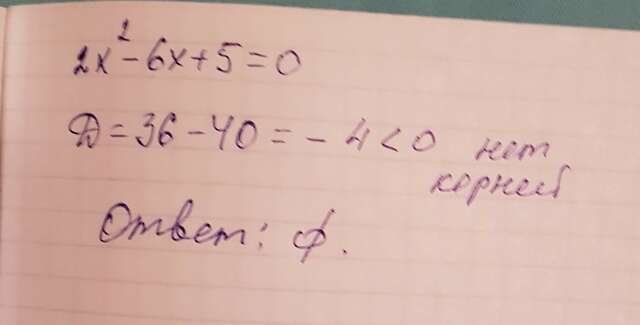 2x²-6x+5=0
D=36-40=-4<0 нет
корней
Ответ: ∅.